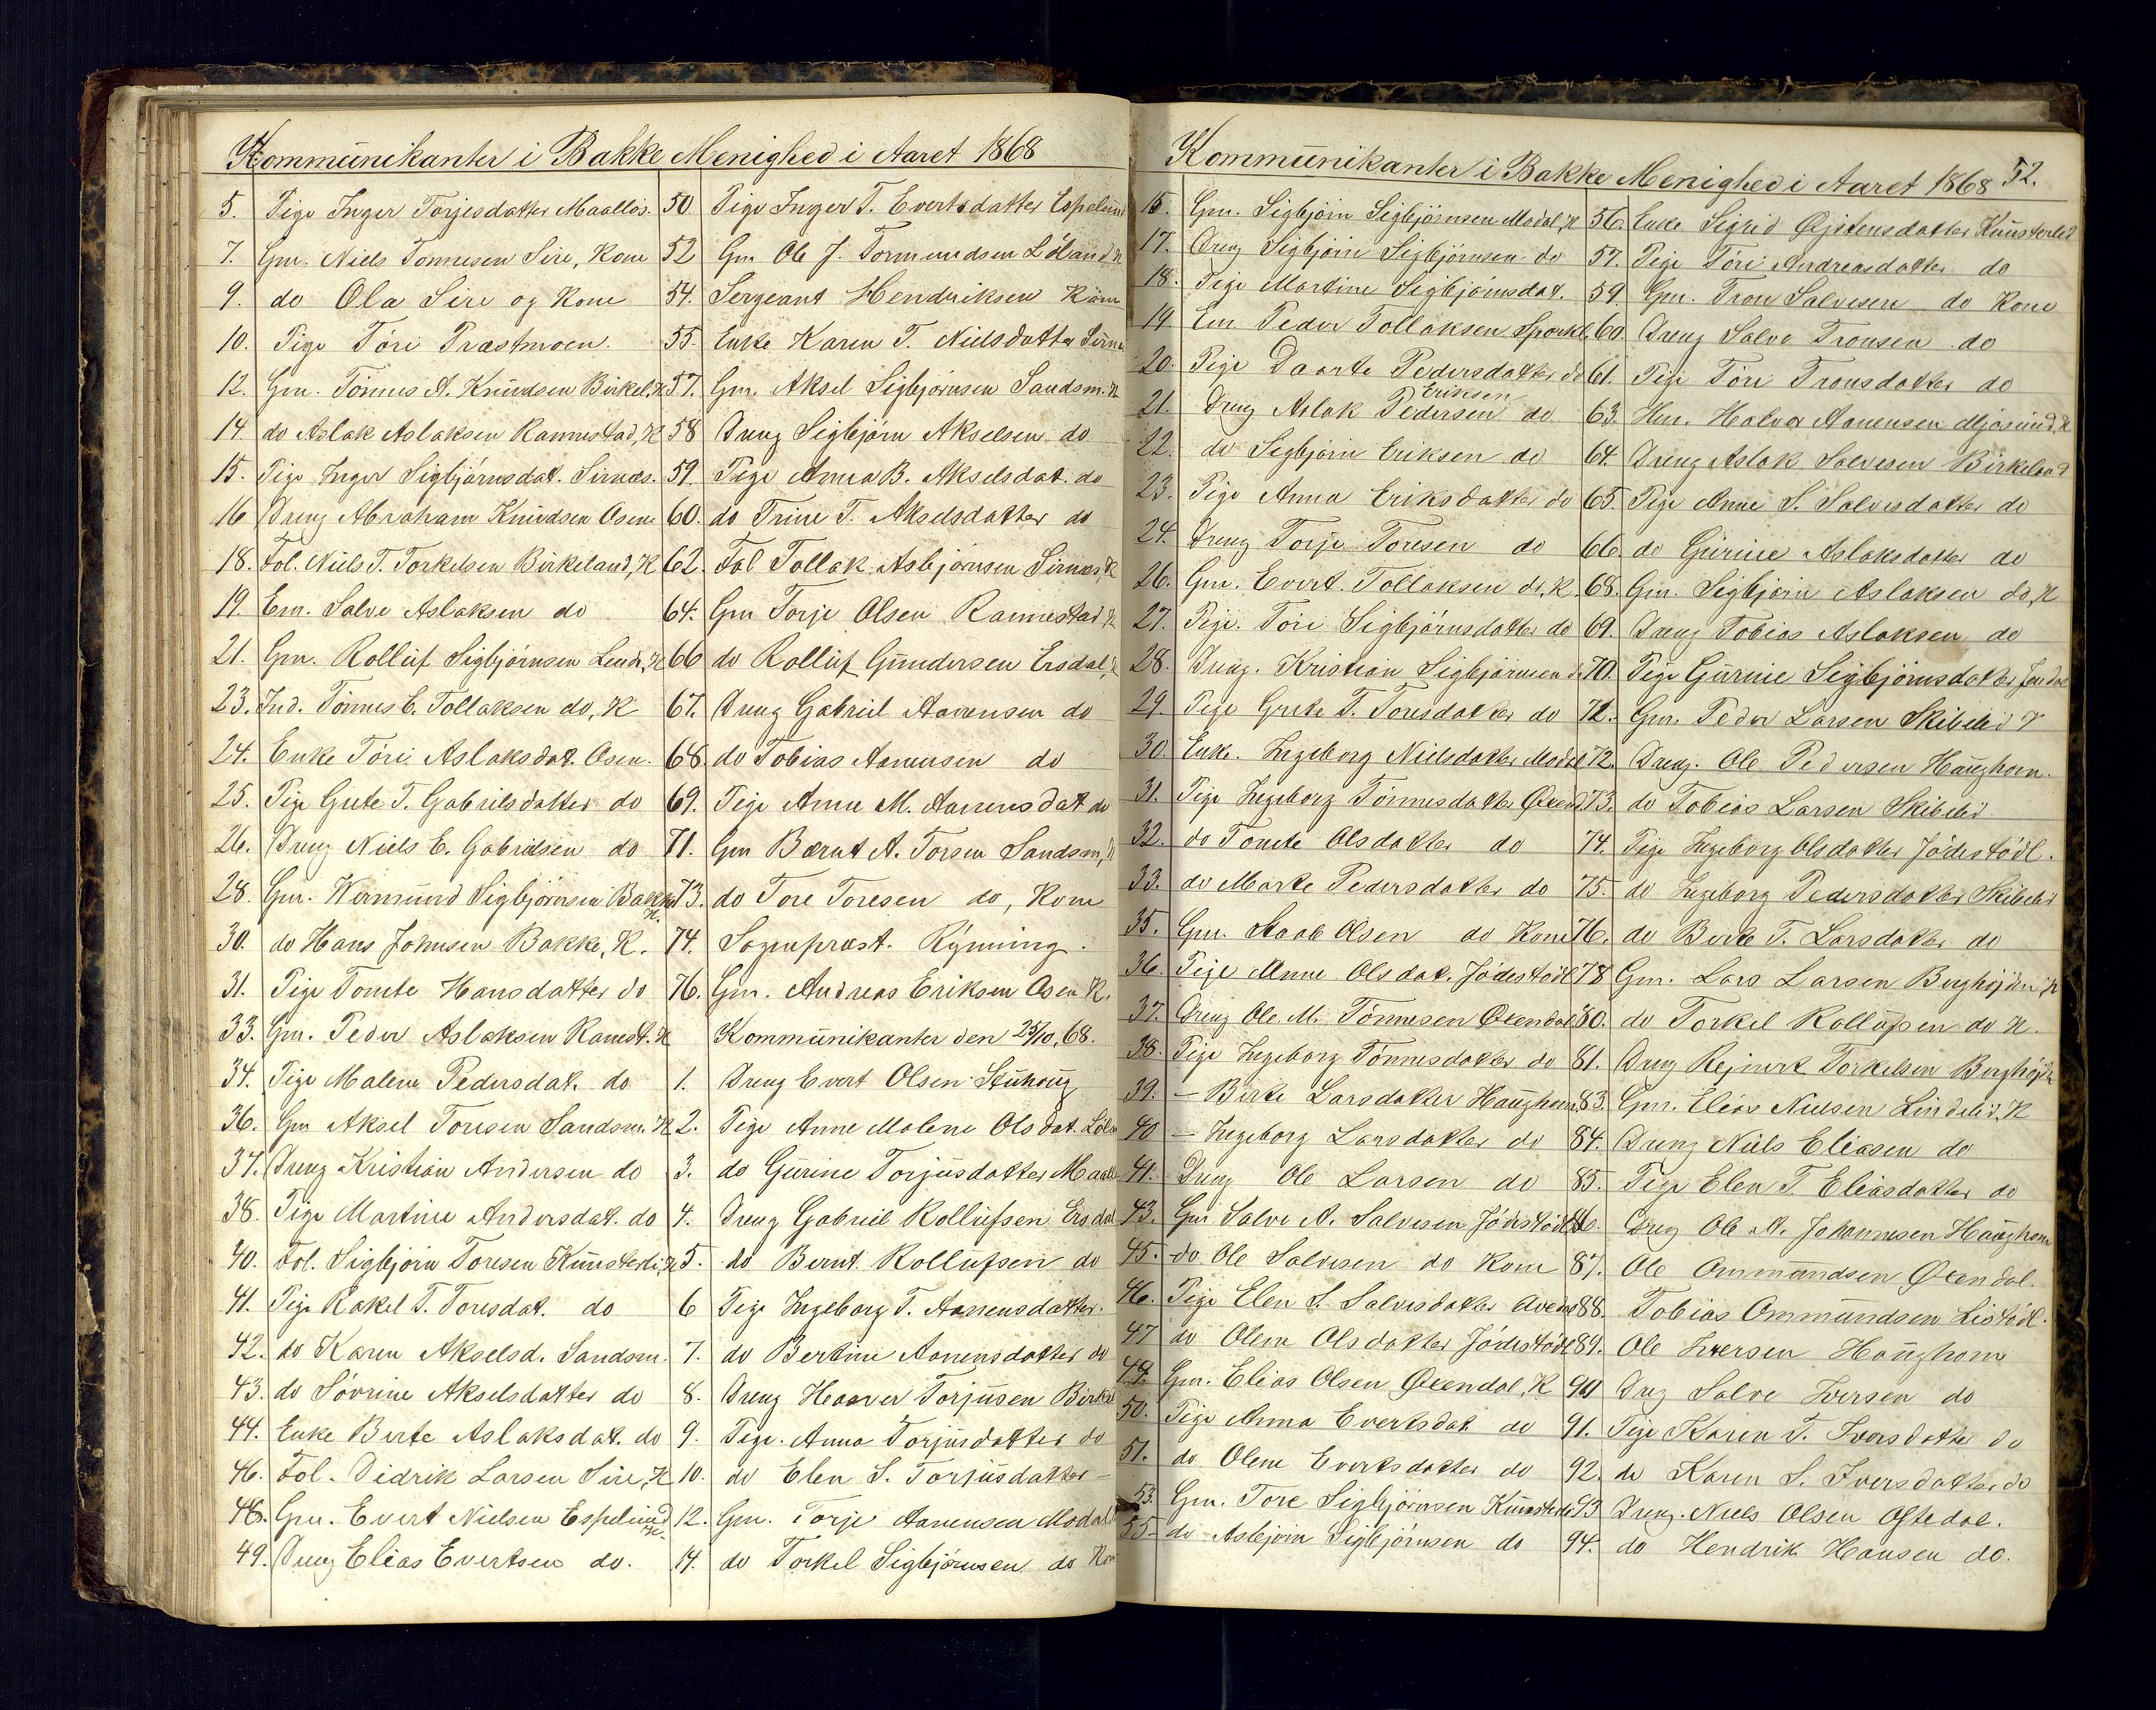 Kommunikanter i Bakke Menighed i Aaret 1868
5. Pige Inger Torjesdatter Maallös.
7. Gm. Niels Tonnesen Sire, Kone
9. do Ola Sire og Kone
10. Pige Töri Præstmoen.
12. Gm. Tönnes A. Knudsen Birkel. K
14. do Aslak Aslaksen Rannestad, K
15. Pige Inger Sigbjörnsdat. Sirnæs.
16 Dreng Abraham Knudsen Osen
18. Fol. Niels T. Torkelsen Birkeland, K
19. Em. Salve Aslaksen do
21. Gm. Rolluf Sigbjörnsen Lende, K
23. Ind. Tönnes E. Tollaksen do, K
24. Enke Töri Aslaksdat. Osen.
25. Pige Grete T. Gabrielsdatter do
26. Dreng Niels E. Gabrielsen do
28. Gm. Wermund Sigbjörnsen Bakke K.
30. do Hans Johnsen Bakke, K.
31. Pige Tomte Hansdatter do
33. Gm. Peder Aslaksen Ranest. K
34. Pige Malene Pedersdat. do
36. Gm Aksel Toresen Sandsm. K
37. Dreng Kristian Andersen do
38. Pige Martine Andersdat. do
40. Fol. Sigbjörn Toresen Kunsterli. K
41. Pige Rakel T. Toresdat. do
42. do Karen Akselsd. Sandsm.
43. do Sövrine Akselsdatter do
44. Enke Berte Aslaksdat. do
46. Fol. Didrik Larsen Sire, K
48. Gm. Evert Nielsen Espelund K.
49. Dreng Elias Evertsen do.
50. Pige Inger T. Evertsdatter Espelund
52 Gm Ole J. Tormundsen Löland K
54. Sergeant Hendriksen
55. Enke Karen T. Nielsdatter
57. Gm. Aksel Sigbjörnsen Sandsm. K
58 Dreng Sigbjörn Akselsen do
59. Pige Anna B. Akselsdat. do
60. do Trine T. Akselsdatter do
62. Fol Tollak Asbjörnsen Sirnæs, K
64. Gm Torje Olsen Rannestad K
66 do Rolluf Gundersen Ersdal, K
67. Dreng Gabriel Aanensen do
68. do Tobias Aanensen do
69. Pige Anne M. Aanensdat do
71. Gm Bernt A. Torsen Sandsm, K
73. do Tore Toresen do, Kone
74. Sognepræst. Rynning.
76. Gm. Andreas Eriksen Osen K.
Kommunikanter den 25/10, 68.
1. Dreng Evert Olsen Stuhaug
2. Pige Anne Malene Olsdat.
3. do Gurine Torjusdatter
4. Dreng Gabriel Rollufsen Ersdal
5. do Bernt Rollufsen do
6 Pige Ingeborg T. Aanensdatter.
7. do Bertine Aanensdatter do
8. Dreng Haaver Torjusen
9. Pige. Anna Torjusdatter do
10. do Elen S. Torjusdatter –
12. Gm. Torje Aanensen Modal
14. do Torkel Sigbjörnsen do
Kommunikanter i Bakke Menighed i Aaret 1868 52.
16. Gm. Sigbjörn Sigbjörnsen Modal, K
17. Dreng Sigbjörn Sigbjörnsen do
18. Pige Martine Sigbjörnsdat.
19. Em. Peder Tollaksen
20. Pige Daarte Pedersdatter do
21. Dreng Aslak Pedersen Eriksen do
22. do Sigbjörn Eriksen do
23. Pige Anna Eriksdatter do
24. Dreng Torje Toresen do
26. Gm. Evert. Tollaksen do, K.
27. Pige. Töri Sigbjörnsdatter do
28. Dreng. Kristian Sigbjörnsen do
29. Pige Grete T. Toresdatter do
30. Enke. Ingeborg Nielsdatter Modal
31. Pige Ingeborg Tönnesdatter Øxend.
32. do Tomte Olsdatter do
33. do Marte Pedersdatter do
35. Gm. Olsen do Kone
36. Pige Anne Olsdat. Jödestödl
37. Dreng Ole. M. Tönnesen Øxendal
38. Pige Ingeborg Tönnesdatter do
39. – Berte Larsdatter Haughom
40 – Ingeborg Larsdatter do
41. Dreng Ole Larsen do
43. Gm Salve A. Salvesen Jödestödl
45. do Ole Salvesen do Kone
46. Pige Elen S. Salvesdatter
47 do Olene Olsdatter Jödestödl
49. Gm. Elias Olsen Øxendal, K
50. Pige Anna Evertsdat do
51. do Olene Evertsdatter do
53. Gm. Tore Sigbjörnsen Kunsterli
55. do Asbjörn Sigbjörnsen do
56. Enke Sigrid Kunsterlid
57. Pige Töri Andreasdatter do
59 Gm. Tron Salvesen do Kone
60. Dreng Salve Tronsen do
61. Pige Töri Tronsdatter do
63. Hm. Halvor Aanensen Mjøsund. K
64. Dreng Aslak Salvesen Birkeland
65. Pige Anne S. Salvesdatter do
66. do Gurine Aslaksdatter do
68. Gm. Sigbjörn Aslaksen do, K
69. Dreng Tobias Aslaksen do
70. Pige Gurine Sigbjörnsdatter
72. Gm. Peder Larsen Skibelid K
72. Dreng. Ole Pedersen Haughom.
73. do Tobias Larsen Skibelid
74. Pige Ingeborg Olsdatter Jödestödl.
75. do Ingeborg Pedersdatter Skibelid
76. do Berte T. Larsdatter do
78 Gm. Lars Larsen Berghöjden K
80. do Torkel Rollufsen do K.
81. Dreng Rejnert Torkelsen Berghöjd
83. Gm. Elias Nielsen Lindelid. K
84. Dreng Niels Eliasen do
85. Pige Elen T. Eliasdatter do
86. Dreg Ole A. Johannesen Haughom
87. Ole Ommundsen Øxendal.
88. Tobias Ommundsen Listödl.
89. Ole Iversen Haughom
90 Dreg Salve Iversen do
91. Pige Karen T. Iversdatter do
92. do Karen S. Iversdatter do
93 Dreng. Niels Olsen Oftedal.
94. do Hendrik Hansen do.